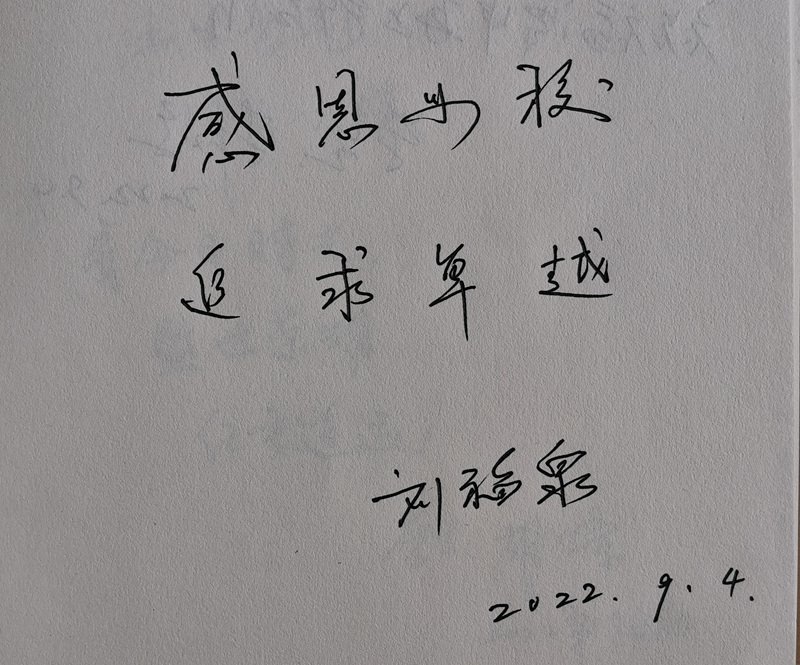 感恩母校
追求卓越
刘福泉
2022.9.4.